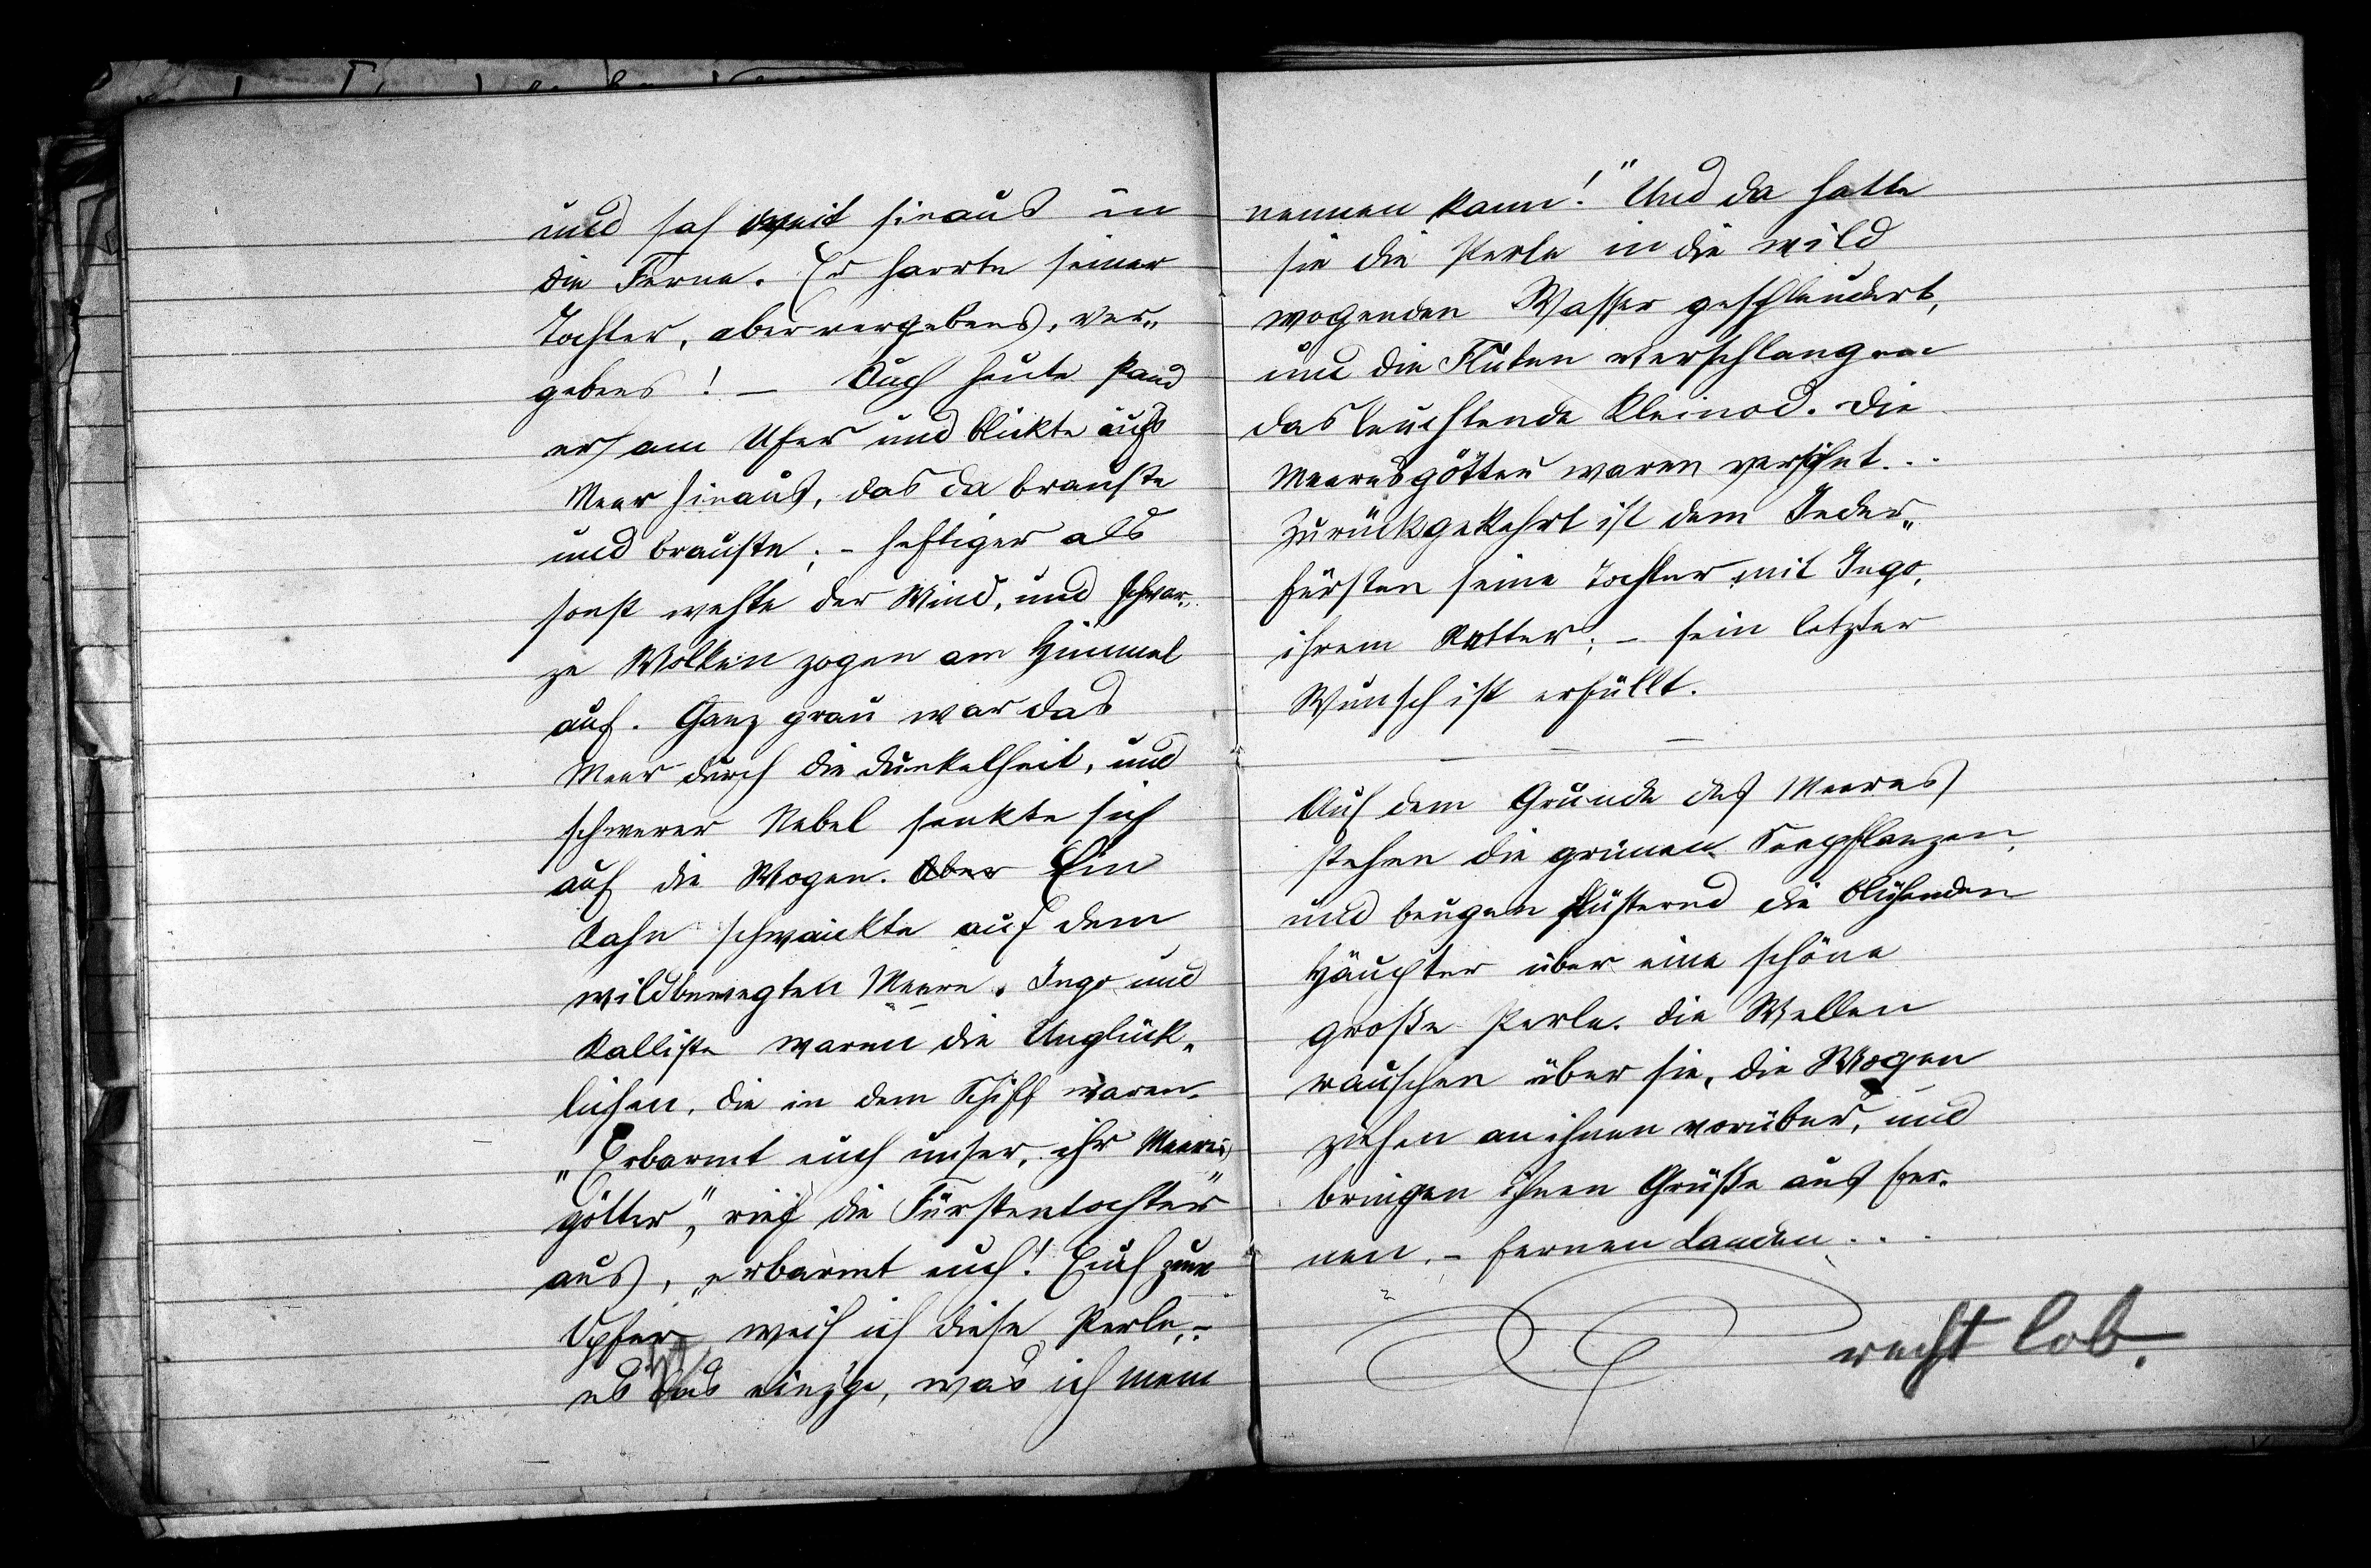 und sah weit hinaus in
die Ferne. Er harrte seiner
Tochter, aber vergebens, ver„
gebens! – Auch heute stand
er am Ufer und blickte aufs
Meer hinaus, das da brauste
und brauste; – heftiger als
sonst wehte der Wind, und schwar„
ze Wolken zogen am Himmel
auf. Ganz grau war das
Meer durch die Dunkelheit, und
schwerer Nebel senkte sich
auf die Wogen. Aber Ein
Kahn schwankte auf dem
wildbewegten Meere. Ingo und
Kalliste waren die Unglück„
lichen, die in dem Schiff waren.
„Erbarmt euch unser, ihr Meeres„
götter,“ rief die Fürstentochter
aus, „erbarmt euch! Euch zum
Opfer weih ich diese Perle, –
es ist das einzge, was ich mein
nennen kann!“ Und da hatte
sie die Perle in die wild
wogenden Wasser geschleudert,
und die Fluten verschlangen
das leuchtende Kleinod. Die
Meeresgötter waren versöhnt...
Zurückgekehrt ist dem Inder„
fürsten seine Tochter mit Ingo,
ihrem Retter; – sein letzter
Wunsch ist erfüllt.
– – –
Auf dem Grunde des Meeres
stehen die grünen Seepflanzen,
und beugen flüsternd die blühenden
Häupter über eine schöne
große Perle. Die Wellen
rauschen über sie, die Wogen
ziehen an ihnen vorüber, und
bringen ihnen Grüße aus fer„
nen, – fernen Landen...
recht lob.